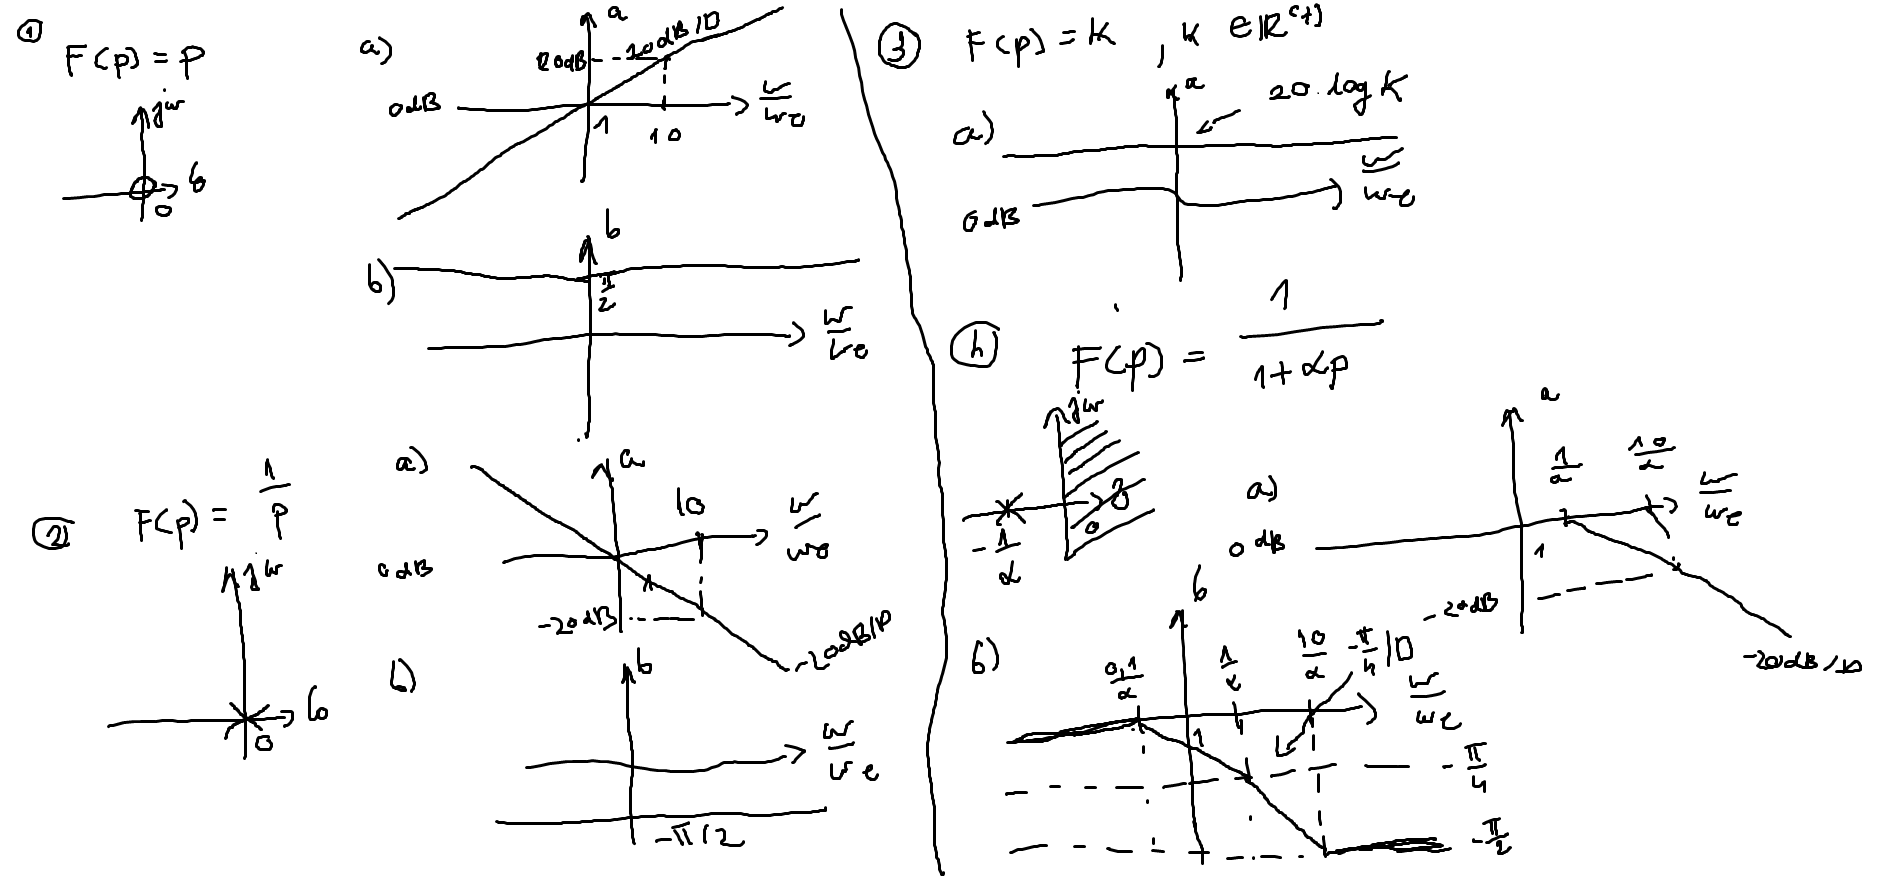 ①
F(p) = p
jω
σ
0
a)
a
20dB
20dB/D
0dB
1
10
ω/ωe
b)
b
π/2
ω/ωe
②
F(p) = 1/p
jω
σ
0
a)
a
10
ω/ωe
0dB
1
-20dB
-20dB/D
b)
b
ω/ωe
-π/2
③
F(p) = K , K ∈ ℝ(+)
a
20.log K
a)
ω/ωe
0dB
④
F(p) = 1/(1+αp)
jω
σ
0
-1/α
a)
a
1/α
10/α
ω/ωe
0dB
1
-20dB
-20dB/D
b)
b
0,1/α
1/α
10/α
-π/4/D
ω/ωe
1
-π/4
-π/2